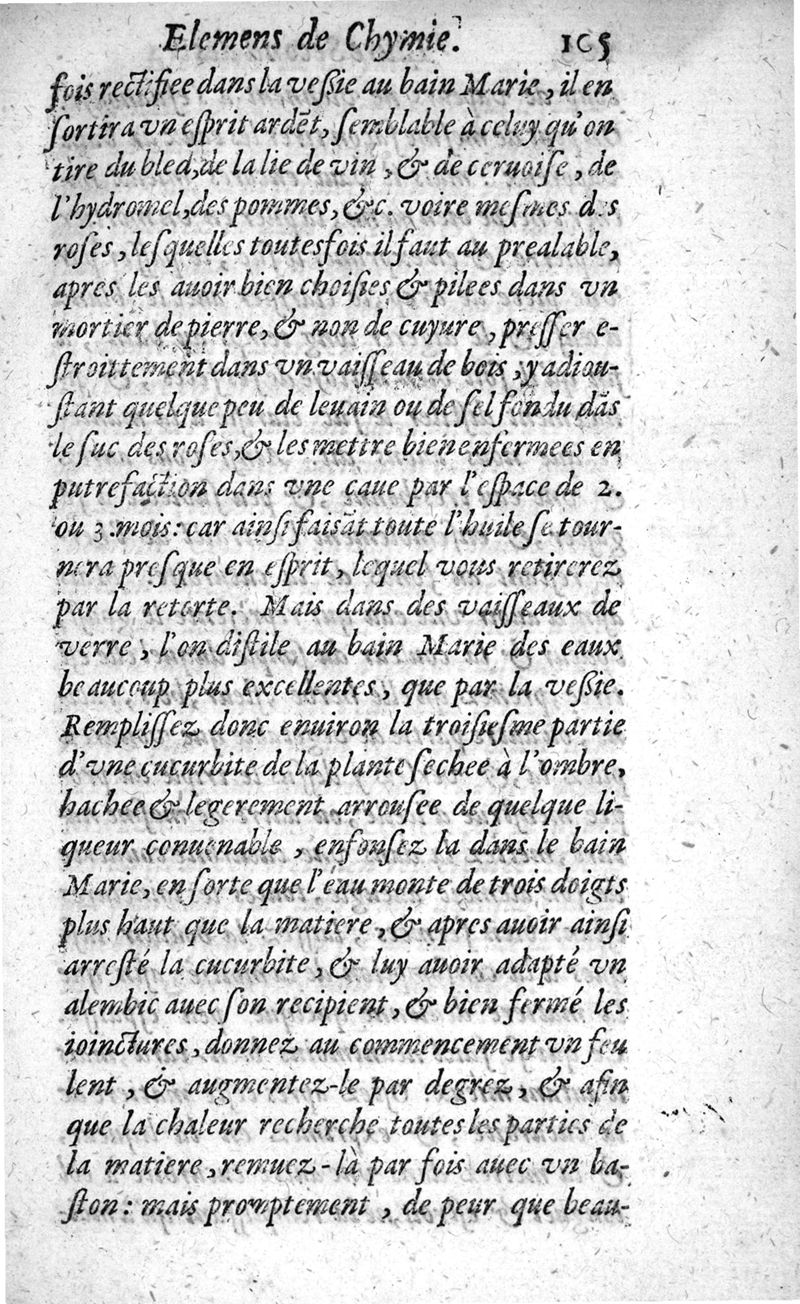 Elemens de Chymie. 105
fois rectifiee dans la veſſie au bain Marie, il en
ſortira vn eſprit ardẽt, ſemblable à celuy qu'on
tire du bled, de la lie de vin, & de ceruoiſe, de
l'hydromel, des pommes, &c. voire meſmes des
roſes, leſquelles toutesfois il faut au prealable,
apres les auoir bien choiſies & pilees dans vn
mortier de pierre, & non de cuyure, preſſer e-
ſtroittement dans vn vaiſſeau de bois, y adiou-
ſtant quelque peu de leuain ou de ſel fondu dãs
le ſuc des roſes, & les mettre bien enfermees en
putrefaction dans vne caue par l'eſpace de 2.
ou 3. mois: car ainſi faisãt toute l'huile ſe tour-
nera preſque en eſprit, lequel vous retirerez
par la retorte. Mais dans des vaiſſeaux de
verre, l'on diſtile au bain Marie des eaux
beaucoup plus excellentes, que par la veſſie.
Rempliſſez donc enuiron la troiſieſme partie
d'vne cucurbite de la plante ſechee à l'ombre,
hachee & legerement arrouſee de quelque li-
queur conuenable, enfonſez la dans le bain
Marie, en ſorte que l'eau monte de trois doigts
plus haut que la matiere, & apres auoir ainſi
arreſté la cucurbite, & luy auoir adapté vn
alembic auec ſon recipient, & bien fermé les
ioinctures, donnez au commencement vn feu
lent, & augmentez-le par degrez, & afin
que la chaleur recherche toutes les parties de
la matiere, remuez-là par fois auec vn ba-
ſton: mais promptement, de peur que beau-